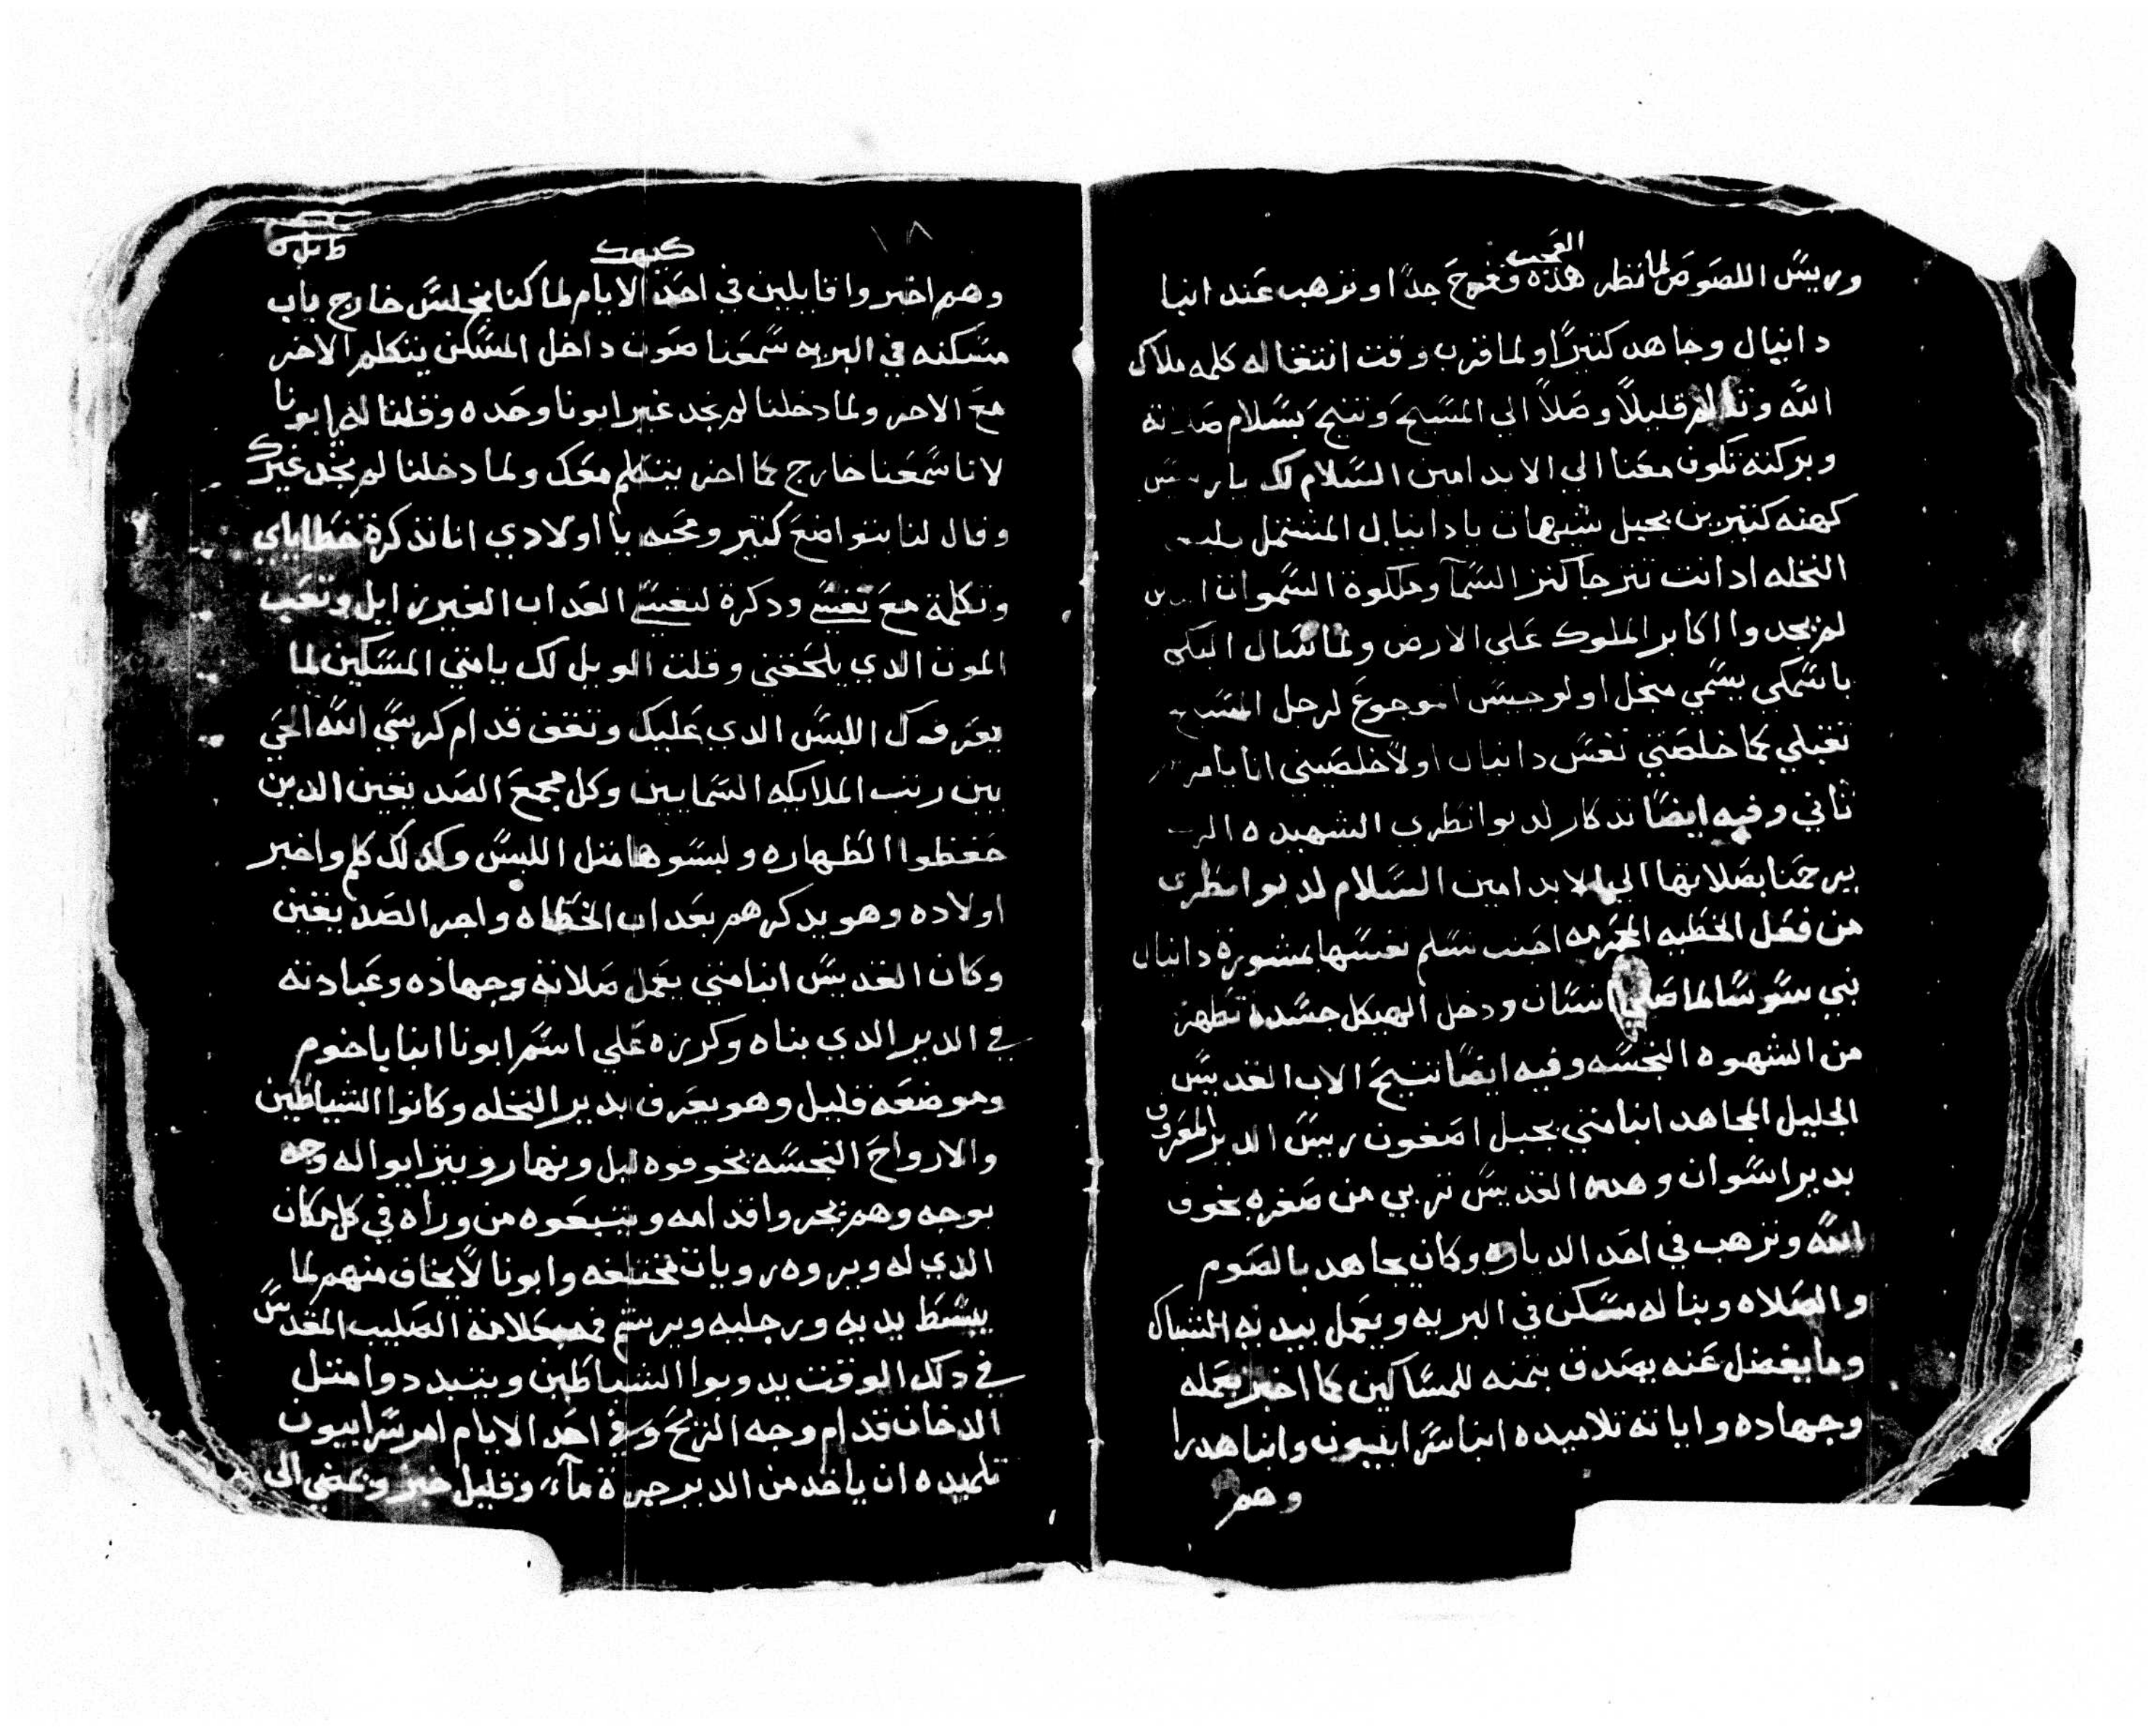 العجب
وريس اللصوص لما نظر هذه فغرح جدا وترهب عند انبا
دانيال وجاهد كتيرا ولما قرب وقت انتغاله كلمه ملاك
الله وتالم قليلا وصلا الي المسيح وتنيح بسلام صلاته
وبركته تكون معنا الي الابد امين السلام لك يا ريس
كهنه كتيرين بجبل شيهات يا دانيال المشتمل
النخله اد انت تترجا كنز السما وملكوة السموات
لم يجدوا اكابر الملوك علي الارض ولما سال اليكي
باسمكي يسمي منخل اولوجيس موجوع لرجل المسيح
تغبلي كما خلصتي نغس دانيال اولا خلصيني انا يا مر
تاني وفيه ايضا تدكار لديوانطري الشهيده الر
يرحمنا بصلاتها الي الابد امين السلام لديوانطري
من فعل الخطيه المحرمه احبت تسلم نغسها بمشورة دانيال
نبي سوسنا لما صلي انسان ودخل الهيكل جسده تطهر
من الشهوه النجسه وفيه ايضا تنيح الاب الغديس
الجليل المجاهد انبا متي بجبل اصغون ريس الدير المعروف
بدير اسوان وهدا الغديس تربي من صغره بخوف
الله وترهب في احد الدياره وكان يجاهد بالصوم
والصلاه وبنا له مسكن في البريه ويعمل بيديه الشباك
وما يغضل عنه يصدق بتمنه للمساكين كما اخبر بعمله
وجهاده واياته تلاميده انبا سرابيون وانبا هدرا
وهم
١٨
كيهك
وهم اخبروا قايلين في احد الايام لما كنا نجلس خارج باب
مسكنه في البريه سمعنا صوت داخل المسكن يتكلم الاخر
مع الاخر ولما دخلنا لم نجد غير ابونا وحده وقلنا له يا ابونا
لانا سمعنا خارج كما اخر يتكلم معك ولما دخلنا لم نجد غيرك
وقال لنا بتواضع كتير ومحبه يا اولادي انا تذكرة خطاياي
وتكلمة مع نغسي ودكرة لنغسي العداب الغير زايل وتعب
الموت الدي يلحغني وقلت الويل لك يا متي المسكين لما
يعرفك اللبس الدي عليك وتغف قدام كرسي الله الحي
بين رتب الملايكه السمايين وكل مجمع الصديغين الدين
حغظوا الطهاره ولبسوها متل اللبس وكدلك كلم واخبر
اولاده وهو يدكرهم بعداب الخطاه واجر الصديغين
وكان الغديس انبا متي يعمل صلاته وجهاده وعبادته
في الدير الدي بناه وكرزه علي اسم ابونا انبا باخوم
وموضعه قليل وهو يعرف بدير النخله وكانوا الشياطين
والارواح النجسه يخوفوه ليل ونهار ويترايوا له وجه
بوجه وهم يجروا قدامه ويتبعوه من وراه في كل مكان
الدي له ويروه رويات مختلغه وابونا لا يخاف منهم لما
يبسط يديه ورجليه ويرشم فمه بعلامة الصليب المغدس
في دلك الوقت يدوبوا الشياطين ويتبددوا متل
الدخان قدام وجه الريح وفي احد الايام امر سرابيون
تلميده ان ياخد من الدير جرة ماء وقليل خبز ويمضي الى